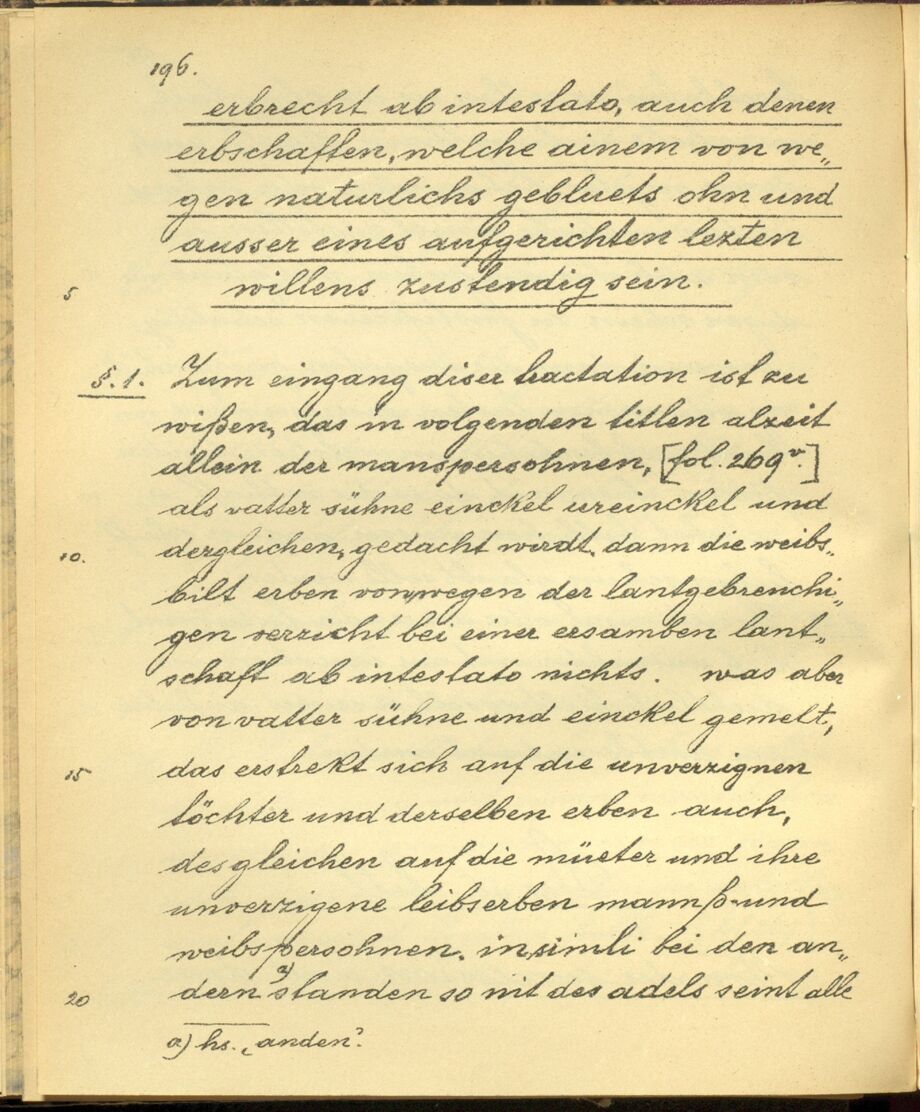 196.
erbrecht ab intestato, auch denen
erbschaften, welche ainem von we„
gen naturlichs gebluets ohn und
ausser eines aufgerichten lezten
5 willens zustendig sein.
§.1. Zum eingang diser tractation ist zu
wißen, das in volgenden titlen alzeit
allein der manspersohnen, [fol. 269v.]
als vatter sühne einckel ureinckel und
10. dergleichen, gedacht wirdt, dann die weibs„
bilt erben von wegen der lantgebreuchi„
gen verzicht bei einer ersamben lant„
schaft ab intestato nichts. was aber
von vatter sühne und einckel gemelt,
15 das erstrekt sich auf die unverzignen
töchter und derselben erben auch,
desgleichen auf die müeter und ihre
unverzigene leibserben mannß- und
weibspersohnen. in simli bei den an„
20 dern a) standen so nit des adels seint alle
a) hs. „anden".